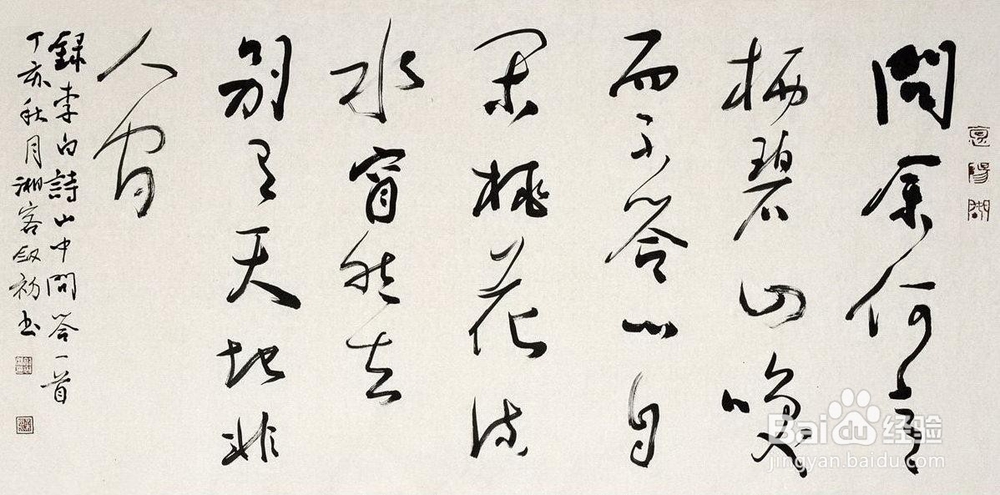 問余何意
栖碧山咲
而不答心自
閑桃花流
水窅然去
別有天地非
人間
録李白詩山中問答一首
丁亥秋月湘客釰初书
Bai du 经验
jingyan.baidu.com